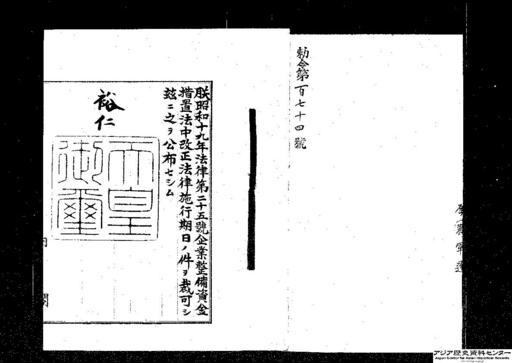 勅令第百七十四號
朕昭和十九年法律第二十五號企業整備資金
措置法中改正法律施行期日ノ件ヲ裁可シ
玆ニ之ヲ公布セシム
裕仁
天皇
御璽
内閣
アジア歴史資料センター
Japan Center for Asian Historical Records